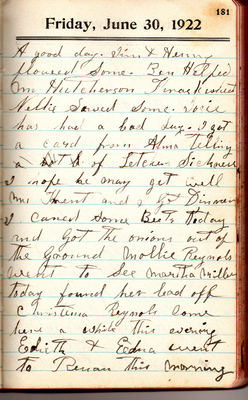 181
Friday, June 30, 1922
A good day. Jim & Henry
plowed some. Ben Helped
Mr Hutcherson Thrash wheat
Nellie Sewed Some. Voice
has had a bad day. I got
a card from Alma telling
a of Letcher Sickness
I hope he may get well
Mr Hunt and Dinner
I caned Some Beets today
and Got the onions out of
the Ground Mollie Reynols
went to See Martha Miller
today found her bad off
Christena Reynols Come
here a while this evening
Edieth & Edna went
to Renan this morning